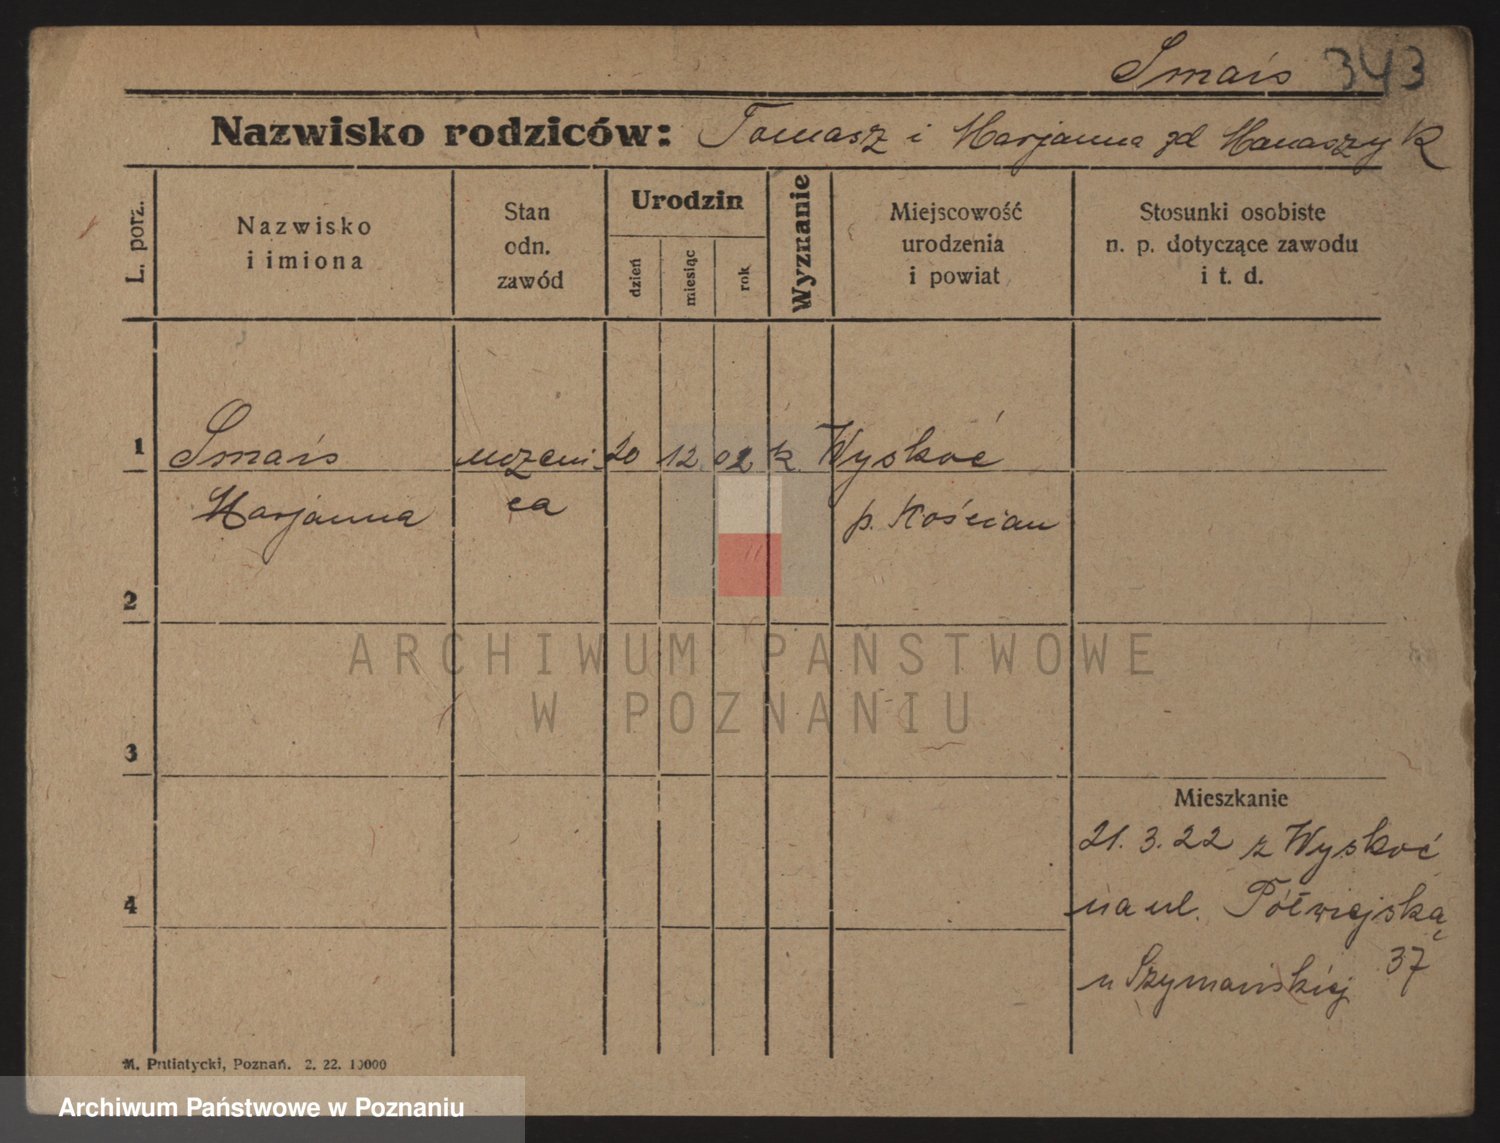 Smais 343
Nazwisko rodziców: Tomasz i Marjanna zd Manaszyk
L. porz.
Nazwisko
i imiona
Stan
odn.
zawód
Urodzin
dzień
miesiąc
rok
Wyznanie
Miejscowość
urodzenia
i powiat
Stosunki osobiste
n. p. dotyczące zawodu
i t. d.
1 Smais uczeni 20 12 02 k. Wyskoć
Marjanna ca p. Kościan
2
ARCHIWUM PAŃSTWOWE
W POZNANIU
3
Mieszkanie
21. 3. 22 z Wyskoć
4 na ul. Półwiejską
37
u Szymańskiej
M. Putiatycki, Poznań. 2. 22. 10000
Archiwum Państwowe w Poznaniu